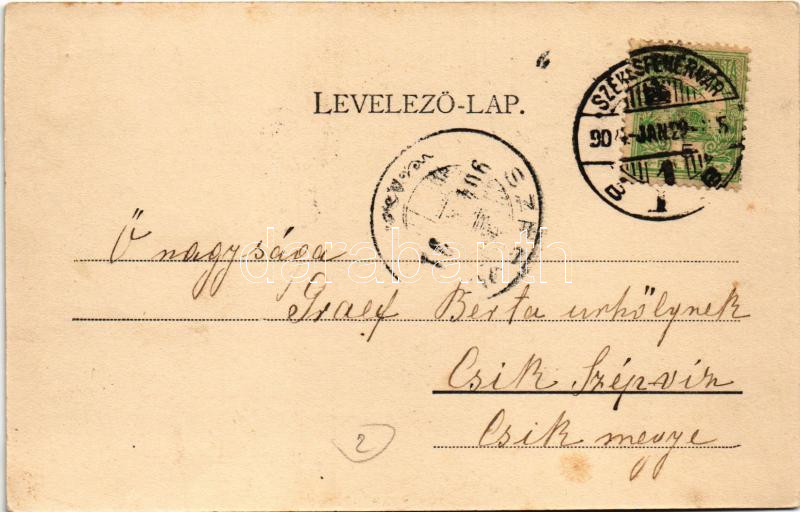 LEVELEZŐ-LAP.
SZÉKESFEHÉRVÁR
904-JAN.29
Ő nagysága
Graef Berta urhölynek
Csik Szépviz
Csik megye
2
darabanth